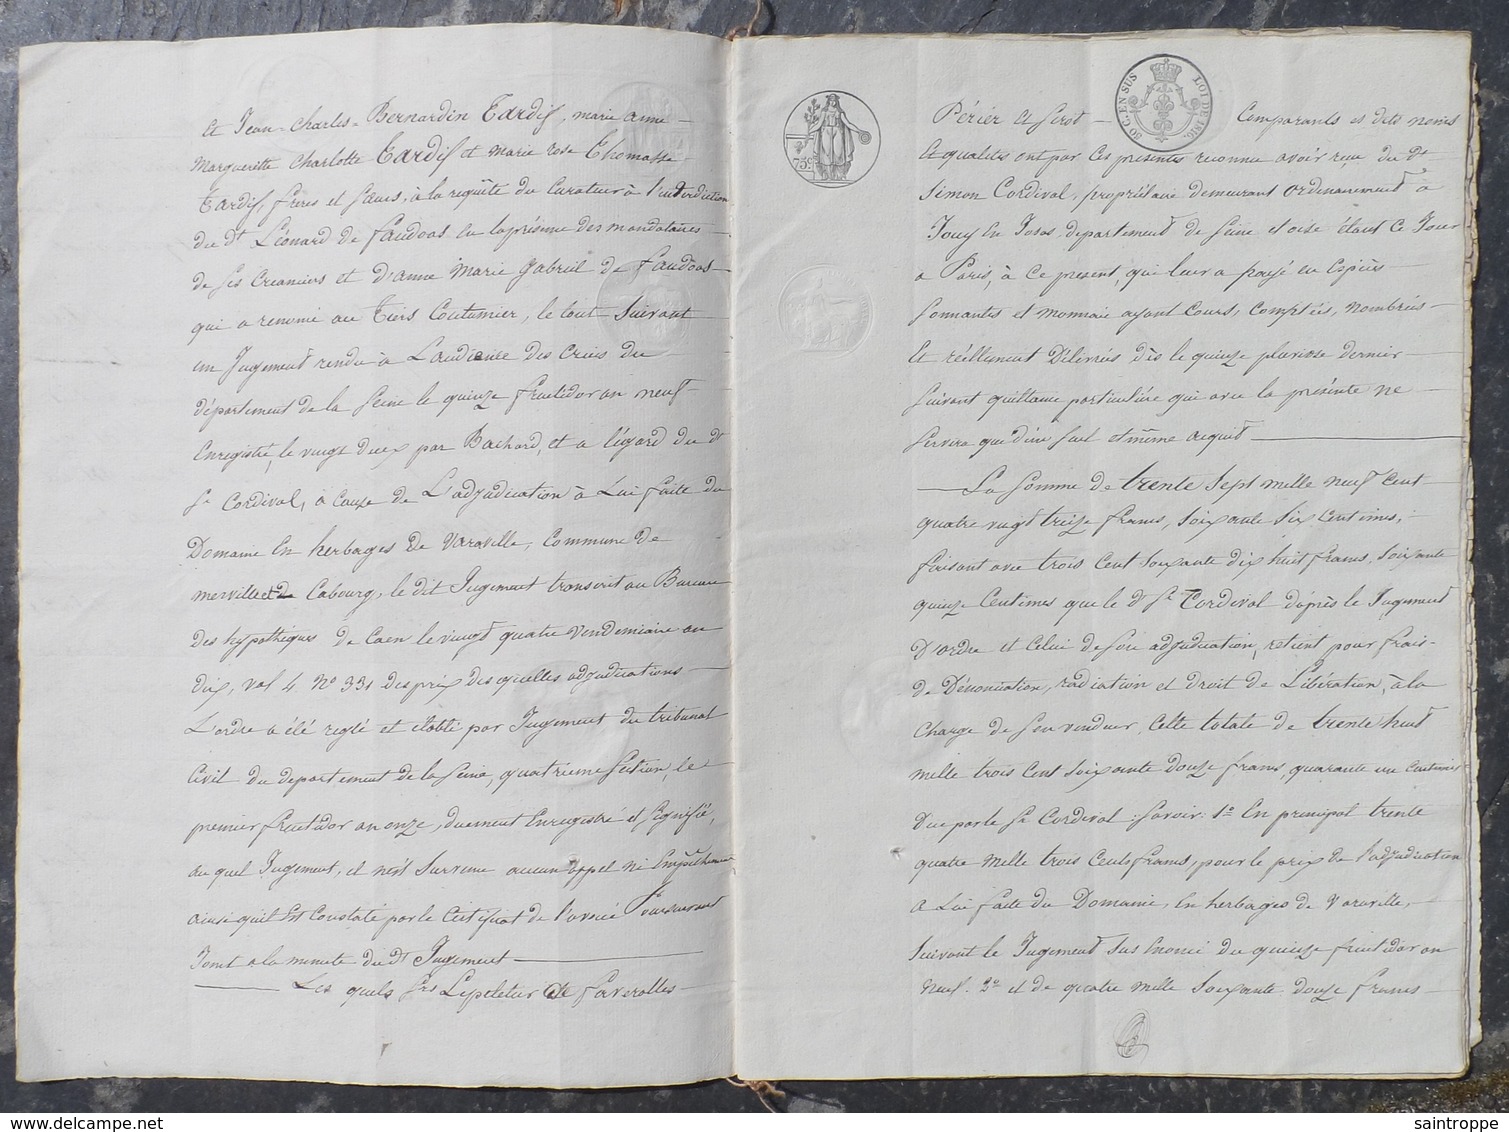 et Jean-Charles-Bernardin Tardif, marie anne
Marguerite charlotte Tardif et marie rose Thomasse
Tardif, frères et sœurs, à la requête du Curateur à l'interdiction
du dt Léonard de faudoas en la présence des mandataires
de ses Creanciers et d'anne Marie gabriel de faudoas
qui a renoncé au Tiers Coutumier, le tout suivant
un Jugement rendu à L'audience des Criées du
département de la Seine le quinze fructidor an neuf
Enregistré, le vingt deux par Bachard, et a l'égard du dt
Sr Cordival, à cause de L'adjudication à Lui faite du
Domaine En herbages de Varaville, Commune de
merville et de Cabourg, le dit Jugement transcrit au Bureau
des hypothèques de Caen le vingt quatre vendemiaire an
dix, vol 4. No 331 des prix des quelles adjudications
L'ordre a été reglé et établi par Jugement du tribunal
Civil du departement de la Seine, quatrieme Section, le
premier fructidor an onze, duement Enregistré et Signifié,
au quel Jugement, il n'est Survenu aucun appel ni Empêchement
ainsi qu'il Est Constaté par le Certificat de l'avoué Poursuivant
Joint a la minute du dt Jugement
Les quels Srs Lepeletier de faverolles
75c.
Périer et Sirot
80 C. EN SUS LOI DE 1816.
Comparants es dits noms
Et qualités ont par Ces présentes reconnu avoir reçu du dt
Simon Cordival, propriétaire demeurant ordinairement à
Jouy En Josas, departement de Seine et oise étant Ce Jour
a Paris, à Ce present, qui leur a payé en Espèces
Sonnantes et monnaie ayant Cours, Comptées, nombrées
Et réellement Délivrées dès le quinze pluviose dernier
Suivant quittance particulière qui avec la présente ne
Servira que d'un Seul et même acquit
La Somme de trente Sept mille neuf Cent
quatre vingt treize francs, Soixante Six Centimes,
faisant avec trois Cent Soixante dix huit francs Soixante
quinze Centimes que le dt Sr Cordival d'après le Jugement
D'ordre et Celui de Son adjudication, retient pour frais
de Dénonciation, radiation et droit de Libération, à la
Charge de Son vendeur, Cette totale de trente huit
mille trois Cent Soixante douze francs, quarante un Centimes
Due par le Sr Cordival : Savoir : 1o En principal trente
quatre mille trois Cents francs, pour le prix de l'adjudication
a Lui faite du Domaine, En herbages de Varaville,
Suivant le Jugement Sus Enoncé du quinze fructidor an
neuf. 2o et de quatre mille Soixante douze francs
saintroppe